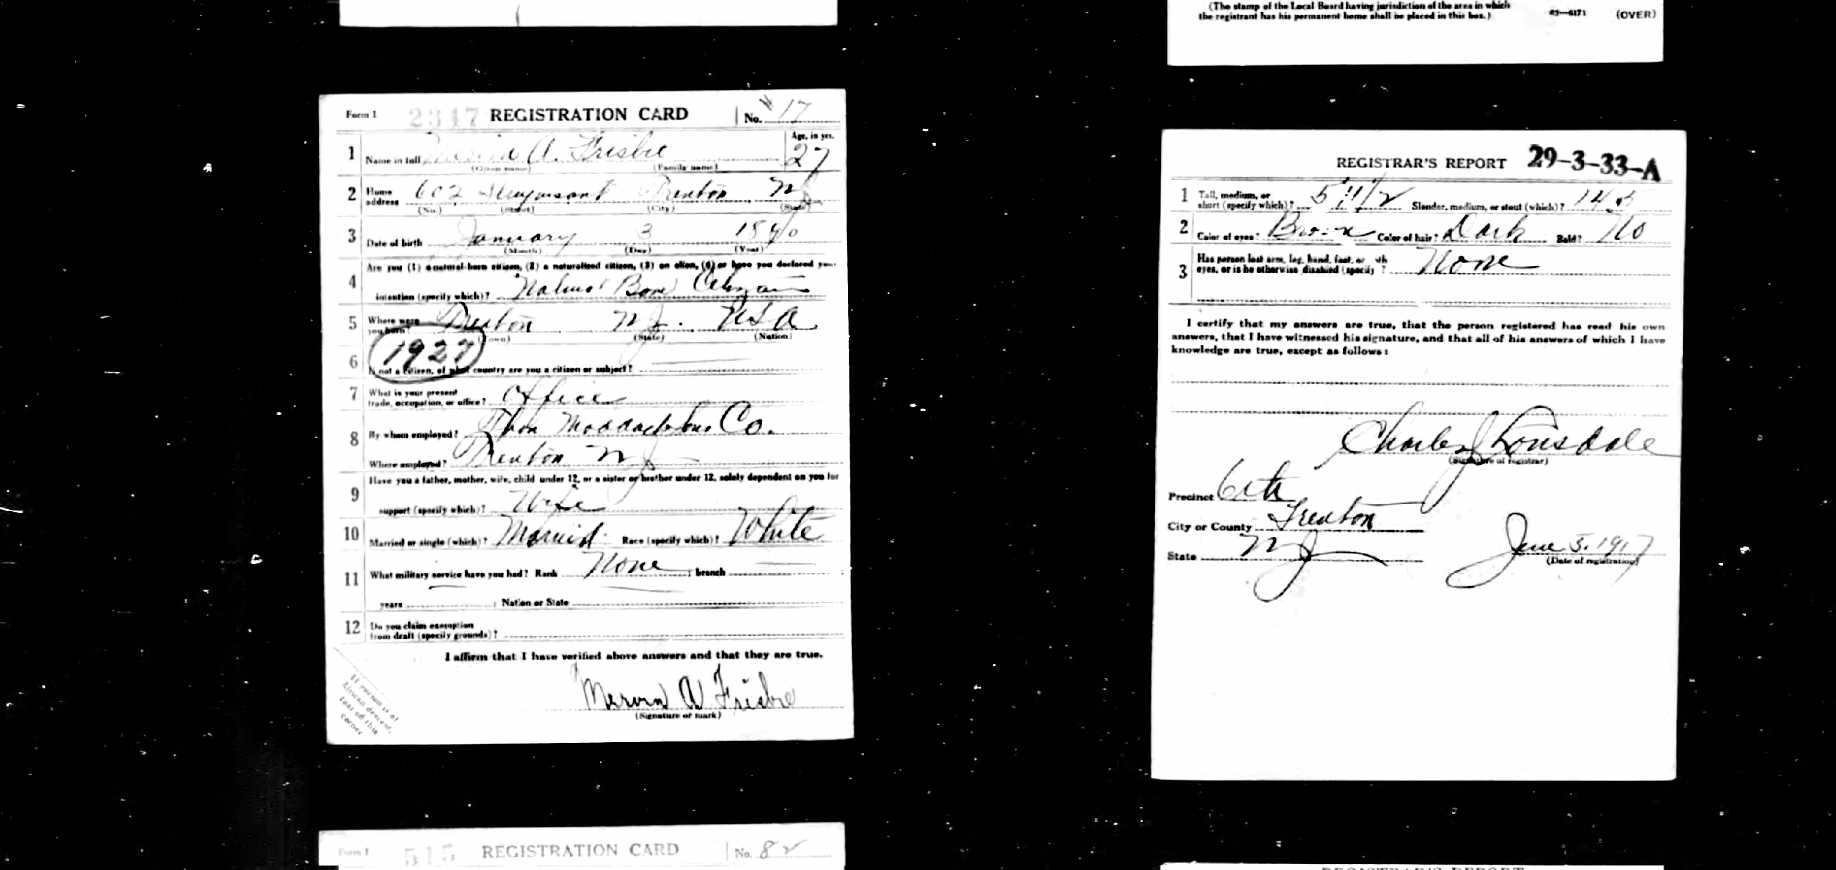 (The stamp of the Local Board having jurisdiction of the area in which
the registrant has his permanent home shall be placed in this box.)
(OVER)
Form 1 2347 REGISTRATION CARD No. 17
Age, in yrs.
1 Name in full A. Frisbie 27
(Given name) (Family name)
2 Home address 602 Trenton NJ
(No.) (Street) (City) (State)
3 Date of birth January 3 1890
(Month) (Day) (Year)
4 Are you (1) a natural-born citizen, (2) a naturalized citizen, (3) an alien, (4) or have you declared your
intention (specify which)? Born
5 Where were you born? Trenton NJ. USA
(Town) (State) (Nation)
1927
6 If not a citizen, of what country are you a citizen or subject?
7 What is your present trade, occupation, or office? Office
8 By whom employed? Thos Maddock Sons Co.
Where employed? Trenton NJ
9 Have you a father, mother, wife, child under 12, or a sister or brother under 12, solely dependent on you for
support (specify which)? Wife
10 Married or single (which)? Married Race (specify which)? White
11 What military service have you had? Rank None ; branch
years ; Nation or State
12 Do you claim exemption from draft (specify grounds)?
I affirm that I have verified above answers and that they are true.
A Frisbie
(Signature or mark)
If person is of
African descent,
tear off this
corner
Form 1 515 REGISTRATION CARD No. 82
REGISTRAR'S REPORT 29-3-33-A
1 Tall, medium, or short (specify which)? 5'11 1/2 Slender, medium, or stout (which)? 143
2 Color of eyes? Brown Color of hair? Dark Bald? No
3 Has person lost arm, leg, hand, foot, or both
eyes, or is he otherwise disabled (specify)? None
I certify that my answers are true, that the person registered has read his own
answers, that I have witnessed his signature, and that all of his answers of which I have
knowledge are true, except as follows:
Charles J Lonsdale
(Signature of registrar)
Precinct 6th
City or County Trenton
State NJ
June 5. 1917
(Date of registration)
REGISTRAR'S REPORT